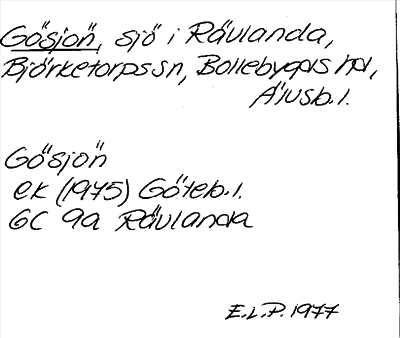 Gösjön, sjö i Rävlanda,
Björketorps sn, Bollebygds hd,
Älvsb. l.
Gösjön
ek (1975) Göteb. l.
GC 9a Rävlanda
E.L.P. 1977